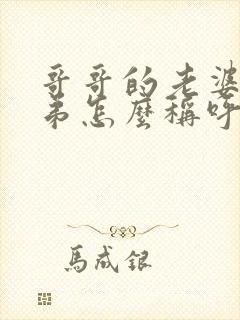 哥哥的老婆
弟怎麼稱呼
馬成銀